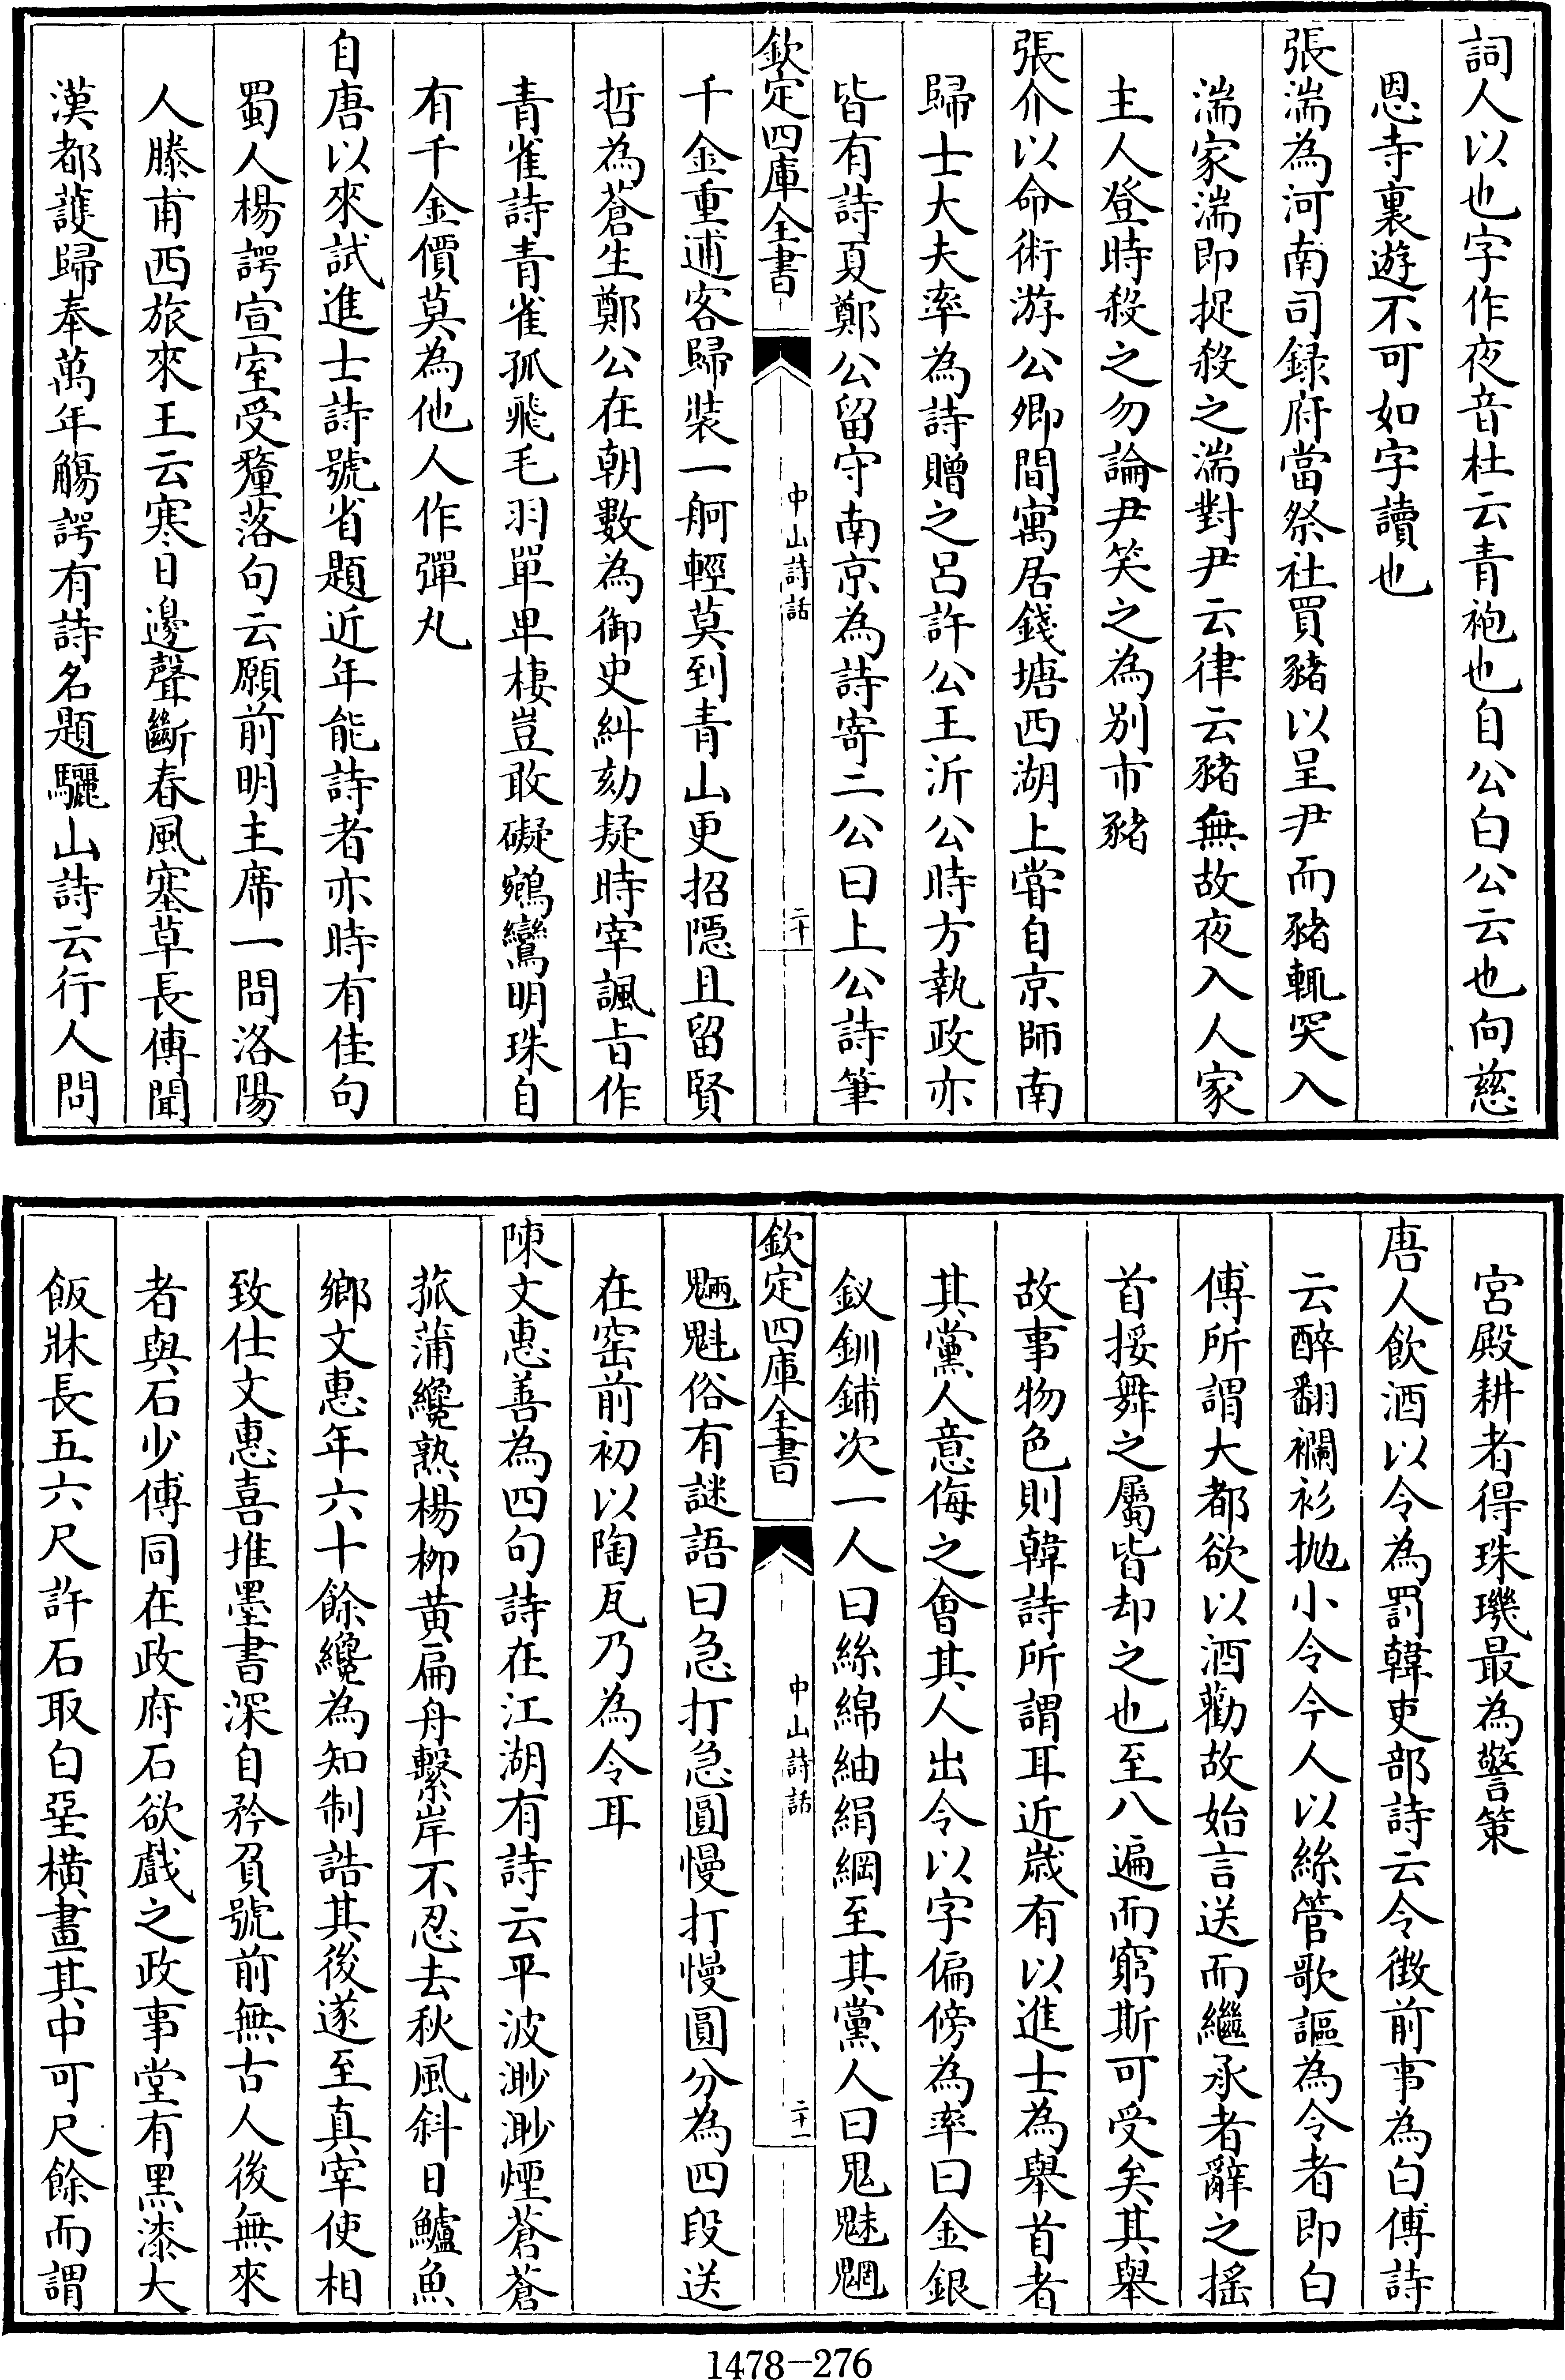 詞人以也字作夜音杜云青袍也自公白公云也向慈
恩寺裏遊不可如字讀也
張湍為河南司録府當祭社買豬以呈尹而豬輒突入
湍家湍即捉殺之湍對尹云律云豬無故夜入人家
主人登時殺之勿論尹笑之為別市豬
張介以命術游公卿間寓居錢塘西湖上嘗自京師南
歸士大夫率為詩贈之呂許公王沂公時方執政亦
皆有詩夏鄭公留守南京為詩寄二公曰上公詩筆
欽定四庫全書
中山詩話
二十
千金重逋客歸裝一舸輕莫到青山更招隱且留賢
哲為蒼生鄭公在朝數為御史糾劾疑時宰諷旨作
青雀詩青雀孤飛毛羽單卑棲豈敢礙鵷鸞明珠自
有千金價莫為他人作彈丸
自唐以來試進士詩號省題近年能詩者亦時有佳句
蜀人楊諤宣室受釐落句云願前明主席一問洛陽
人滕甫西旅來王云寒日邊聲斷春風塞草長傳聞
漢都護歸奉萬年觴諤有詩名題驪山詩云行人問
宮殿耕者得珠璣最為警策
唐人飲酒以令為罰韓吏部詩云令徵前事為白傅詩
云醉翻襴衫抛小令今人以絲管歌謳為令者即白
傅所謂大都欲以酒勸故始言送而繼承者辭之搖
首挼舞之屬皆却之也至八遍而窮斯可受矣其舉
故事物色則韓詩所謂耳近歲有以進士為舉首者
其黨人意侮之會其人出令以字偏傍為率曰金銀
釵釧鋪次一人曰絲綿紬絹綱至其黨人曰鬼魅魍
欽定四庫全書
中山詩話
二十一
魎魁俗有謎語曰急打急圓慢打慢圓分為四段送
在窑前初以陶瓦乃為令耳
陳文惠善為四句詩在江湖有詩云平波渺渺煙蒼蒼
菰蒲纔熟楊栁黄扁舟繫岸不忍去秋風斜日鱸魚
鄉文惠年六十餘纔為知制誥其後遂至真宰使相
致仕文惠喜堆墨書深自矜負號前無古人後無來
者與石少傅同在政府石欲戲之政事堂有黑漆大
飯牀長五六尺許石取白堊橫畫其中可尺餘而謂
1478-276